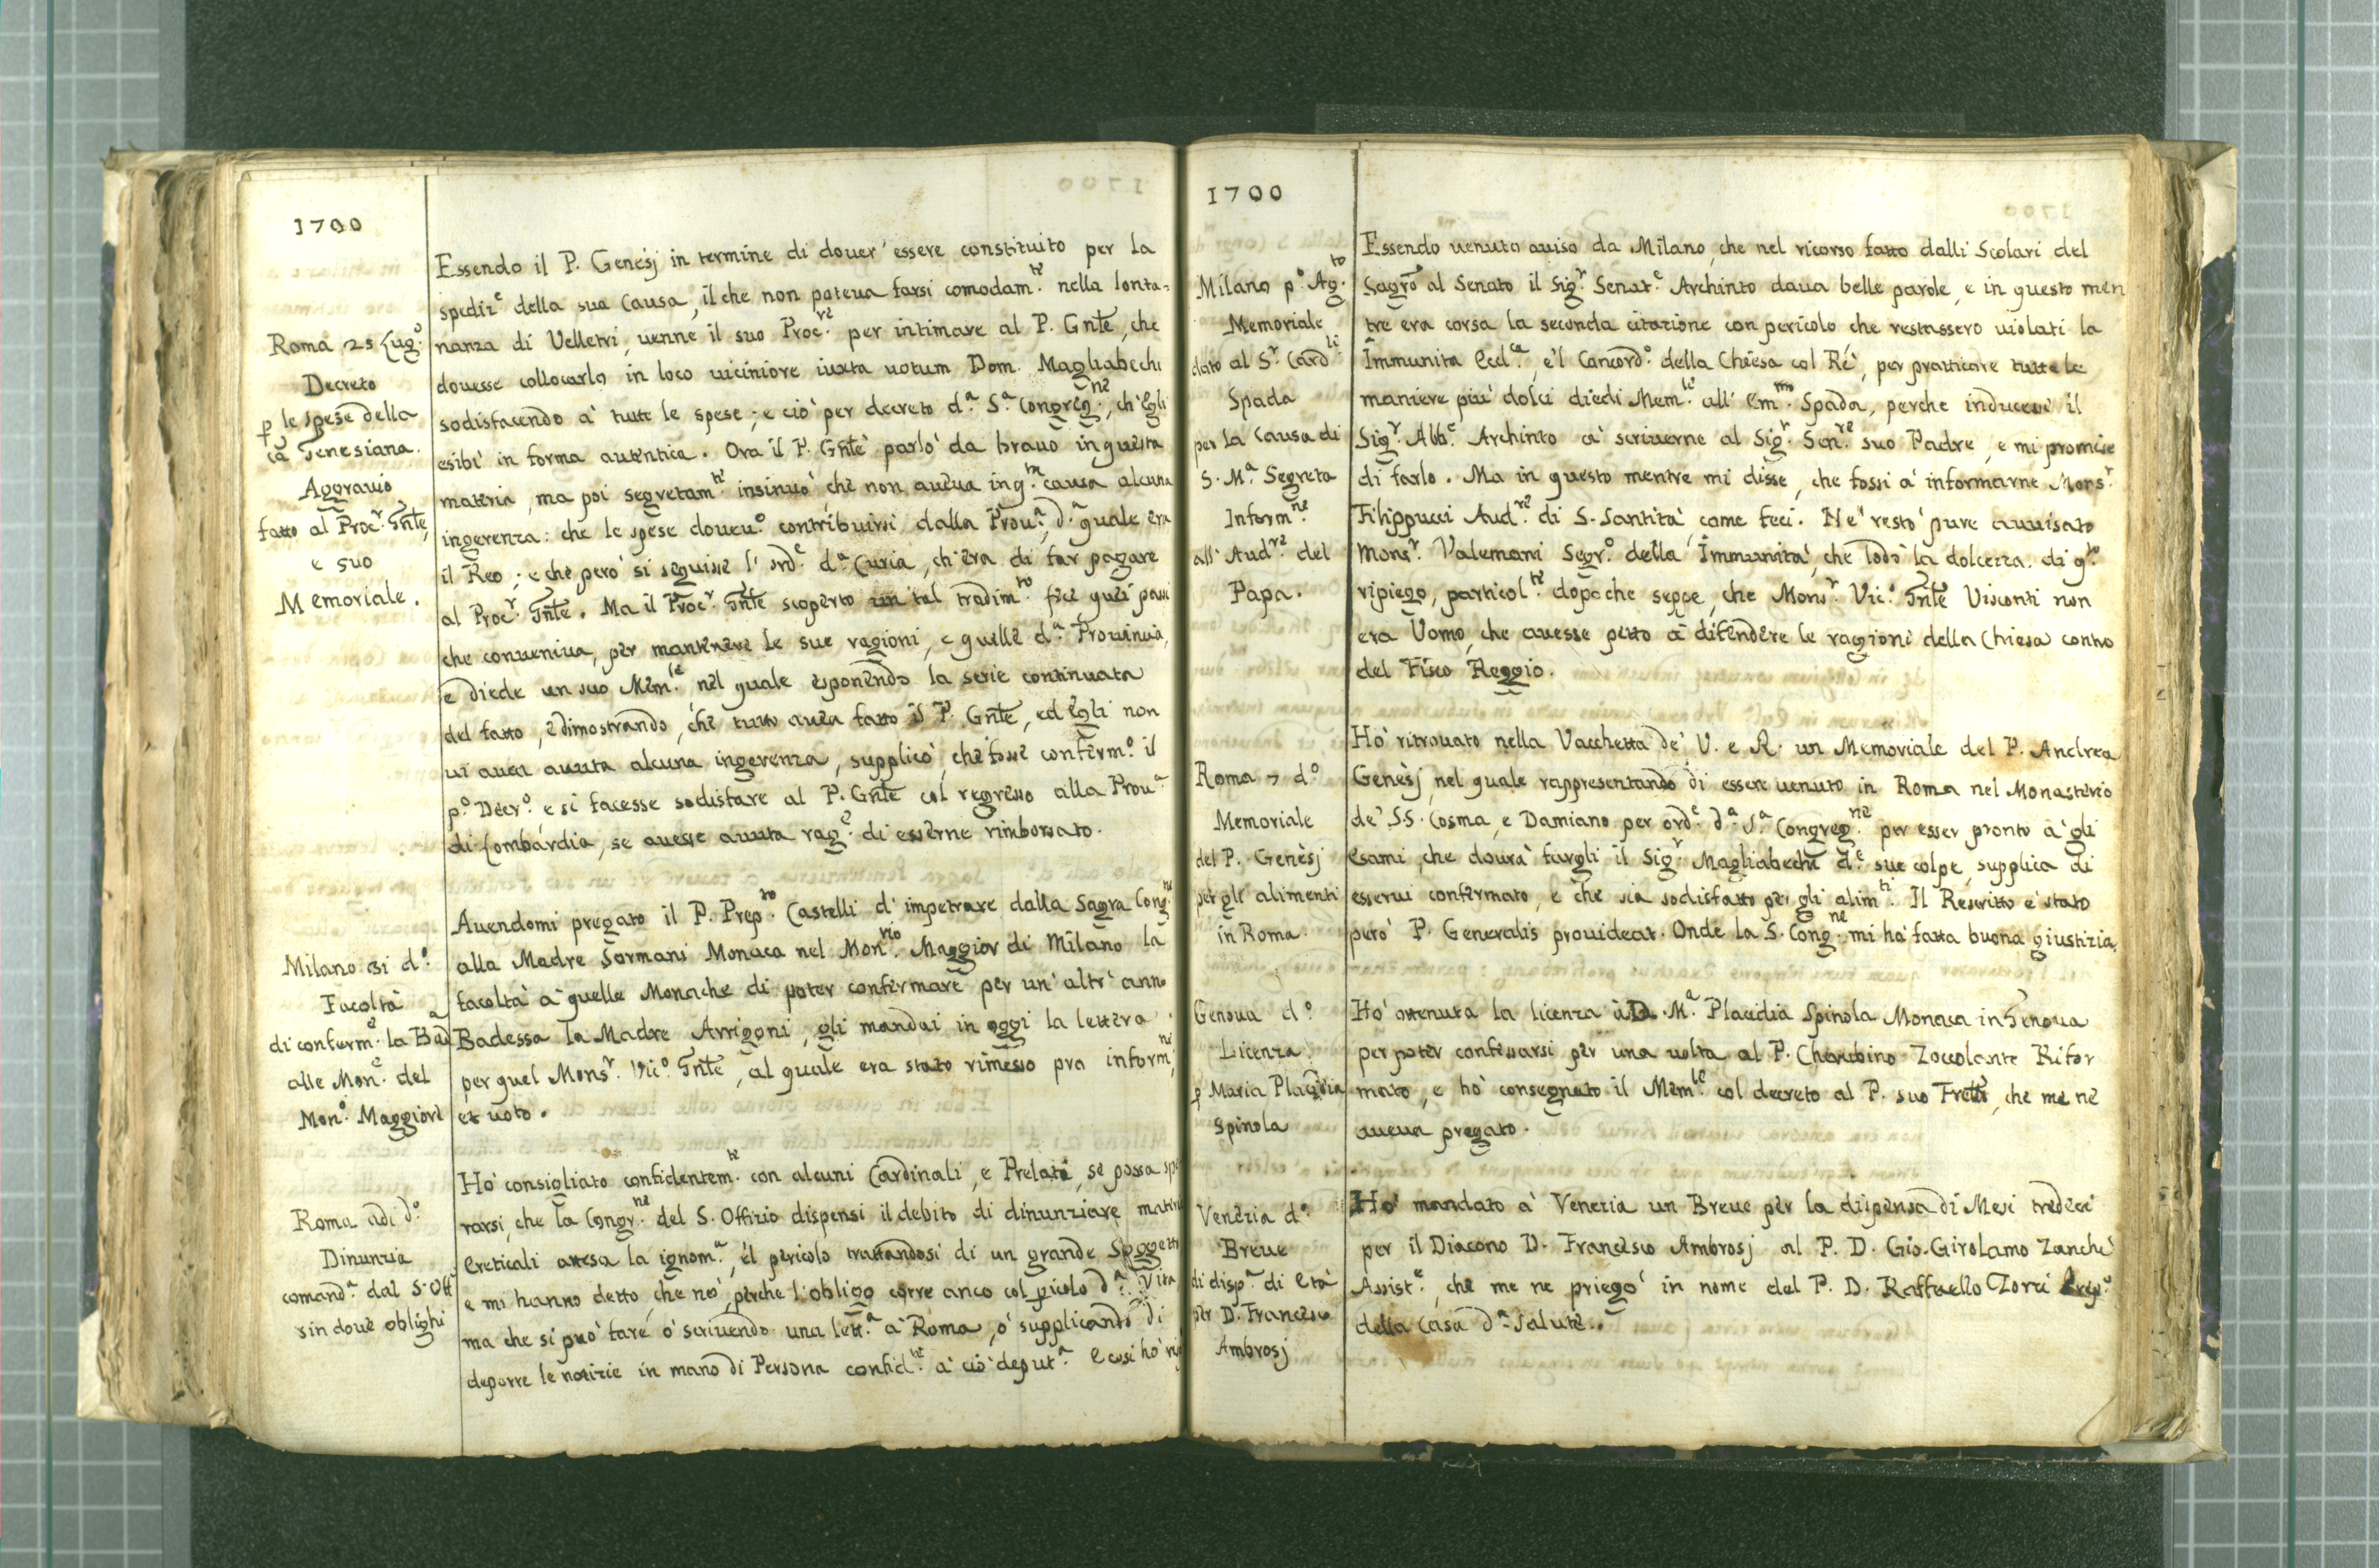 1700
Essendo il P. Genesj in termine di douer' essere constituito per la
spediz.e della sua Causa, il che non poteua farsi comodam.te nella lonta-
Roma 25 Lug.o
nanza di Velletri, uenne il suo Proc.re per intimare al P. Gnte, che
Decreto
douesse collocarlo in loco uiciniore iuxta uotum Dom. Magliabechi
p le spese della
sodisfacendo à tutte le spese; e ciò per decreto d.a S.a Congreg.ne, ch'egli
ca Genesiana.
esibì in forma autentica. Ora il P. Gnte parlò da brauo in questa
Aggrauio
materia, ma poi segretam.te insinuò che non aueua in q.ta causa alcuna
fatto al Proc.r Gnte,
ingerenza: che le spese doueu.o contribuirsi dalla Prou.a, d.a quale era
e suo
il Reo; e che però si seguisse l'ord.e d.a Curia, ch'era di far pagare
Memoriale.
al Proc.r Gnte. Ma il Proc.r Gnte scoperto un tal tradim.to fece quei passi
che conueniua, per mantenere le sue ragioni, e quelle d.a Prouincia,
e diede un suo Mem.le nel quale esponendo la serie continuata
del fatto, e dimostrando, che tutto auea fatto il P. Gnte, ed egli non
ui auea auuta alcuna ingerenza, supplicò, che fosse conferm.o il
p.o Decr.o e si facesse sodisfare al P. Gnte col regresso alla Prou.a
di Lombardia, se auesse auuta rag.e di esserne rimborsato.
Auendomi pregato il P. Prep.to Castelli d'impetrare dalla Sagra Cong.ne
Milano 31 d.o
alla Madre Sormani Monaca nel Mon.rio Maggior di Milano la
Facoltà
facoltà à quelle Monache di poter confermare per un'altr'anno
di conferm.e la Bad.a
Badessa la Madre Arrigoni, gli mandai in oggi la lettera
alle Mon.e del
per quel Mons.r Vic.o Gnte, al quale era stato rimesso pra inform.ne
Mon.o Maggiore
et uoto.
Hò consigliato confidentem.te con alcuni Cardinali, e Prelati, se possa spe
Roma adi d.o
rarsi, che la Congr.ne del S. Offizio dispensi il debito di dinunziare
Dinunzia
Ereticali attesa la ignom.a, e'l pericolo trattandosi di un grande
comand.a dal S. Off.
e mi hanno detto, che nò, perche l'obligo corre anco col picolo d.a Vita,
sin doue oblighi
ma che si può fare ò scriuendo una lett.a à Roma, ò supplicando di
deporre le notizie in mano di Persona confid.te à ciò deput.a E così hò
1700
Essendo uenuto auiso da Milano, che nel ricorso fatto dalli Scolari del
Milano p.o Ag.to
Sagro al Senato il Sig.r Senat.e Archinto daua belle parole, e in questo men
Memoriale
tre era corsa la seconda citazione con pericolo che restassero uiolati la
dato al S.r Card.le
Immunità Eccl.ca, e'l Concord.o della Chiesa col Rè, per pratticare tutte le
Spada
maniere più dolci diedi Mem.le all' Em.mo Spada, perche inducesse il
per la Causa di
Sig.r Abb.e Archinto à scriuerne al Sig.r Sen.re suo Padre, e mi promise
S. M.a Segreta
di farlo. Ma in questo mentre mi disse, che fossi à informarne Mons.r
Inform.ne
Filippucci Aud.re di S. Santità come feci. Ne restò pure auuisato
all' Aud.re del
Mons.r Valemani Segr.o della Immunità, che lodò la dolcezza di q.to
Papa.
ripiego, particol.te dopo che seppe, che Mons.r Vic.o Gnte Visconti non
era Uomo, che auesse petto à difendere le ragioni della Chiesa contro
del Fisco Reggio.
Hò ritrouato nella Vacchetta de' V. e R. un Memoriale del P. Andrea
Roma 7 d.o
Genesj, nel quale rappresentando di essere uenuto in Roma nel Monasterio
Memoriale
de' S.S. Cosma, e Damiano per ord.e d.a S.a Congreg.ne per esser pronto à gli
del P. Genesj
Esami, che dourà fargli il Sig.r Magliabechi d.e sue colpe, supplica di
per gli alimenti
esserui confermato, e che sia sodisfatto per gli alim.ti. Il Rescritto è stato
in Roma.
però P. Generalis prouideat. Onde la S. Cong.ne mi hà fatta buona giustizia.
Genoua d.o
Hò ottenuta la licenza à D. M.a Placidia Spinola Monaca in Genoua
Licenza
per poter confessarsi per una uolta al P. Cherubino Zoccolante Rifor
p Maria Placidia
mato, e hò consegnato il Mem.le col decreto al P. suo Fretto, che me ne
Spinola
aueua pregato.
Venezia d.o
Hò mandato à Venezia un Breue per la dispensa di Mesi tredeci
Breue
per il Diacono D. Francesco Ambrosj al P. D. Gio. Girolamo Zanchi
di disp.a di Età
Assist.e, che me ne priegò in nome del P. D. Raffaello Zorzi Prep.o
per D. Francesco
della Casa d.a Salute.
Ambrosj